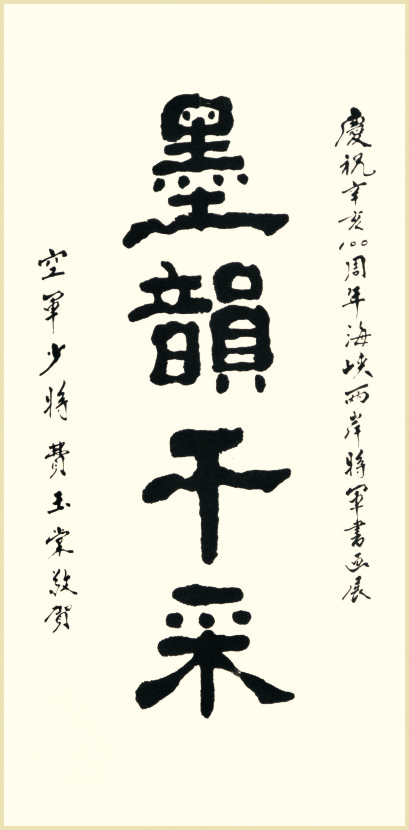 慶祝辛亥100周年海峡两岸將軍書画展
墨韻千采
空軍少將費玉棠敬賀